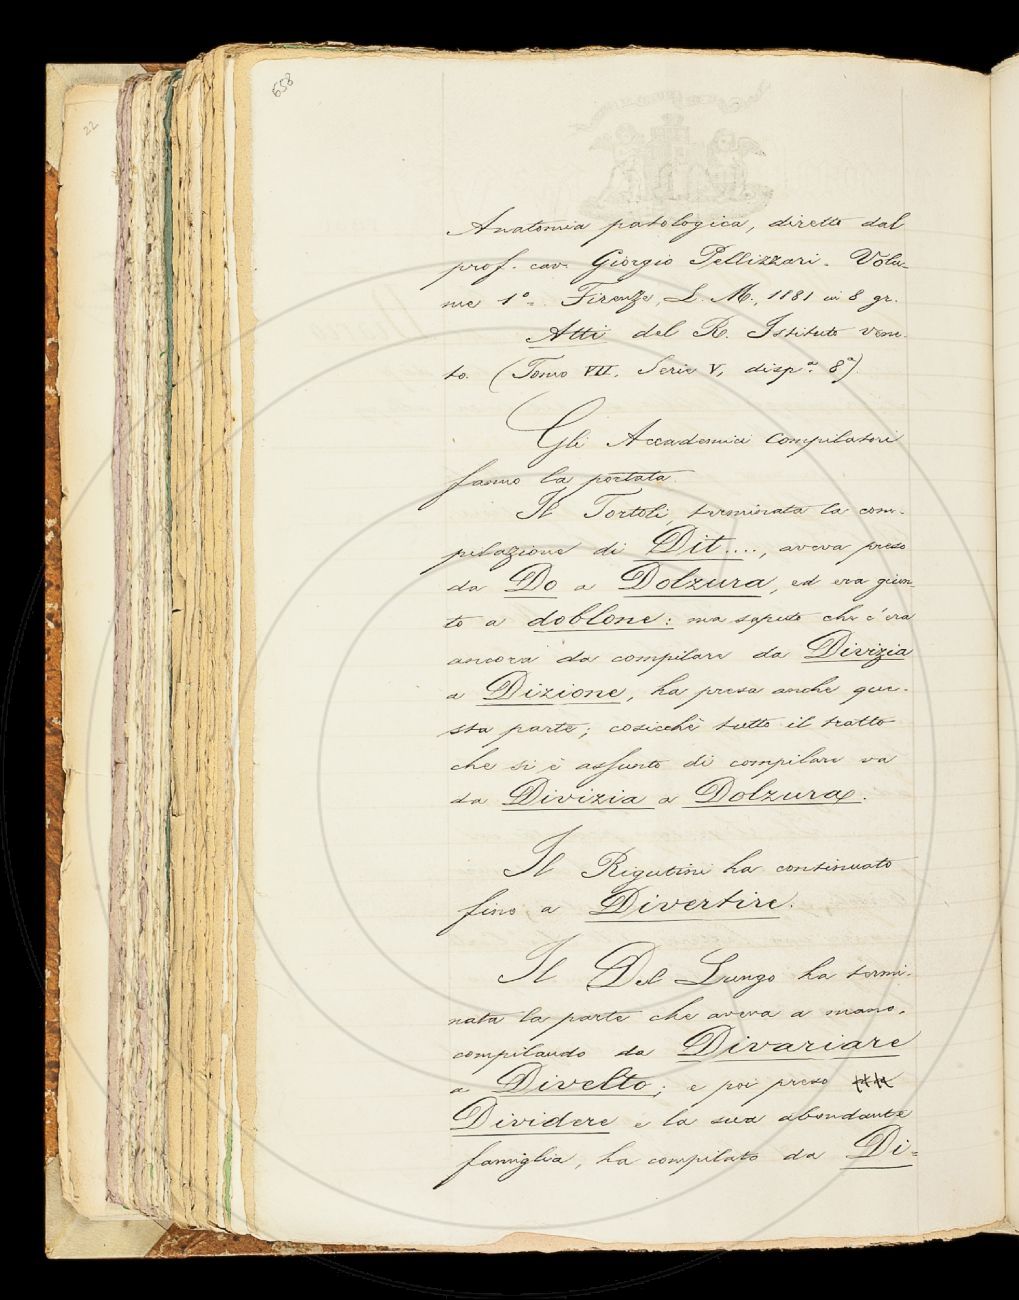 658
22
Anatomia patologica, diretto dal
prof. cav. Giorgio Pellizzari. Volu-
me 1°= Firenze, L. M., 1881 in 8 gr.
Atti del R. Istituto vene-
to. (Tomo VII, Serie V, disp.ª 8ª).
Gli Accademici compilatori
fanno la portata.
Il Tortoli, terminata la com-
pilazione di Dit...., aveva preso
da Do a Dolzura, ed era giun-
to a doblone: ma saputo che c'era
ancora da compilare da Divizia
a Dizione, ha preso anche que-
sta parte; cosicchè tutto il tratto
che si è assunto di compilare va
da Divizia a Dolzura.
Il Rigutini ha continuato
fino a Divertire.
Il Del Lungo ha termi-
nata la parte che aveva a mano,
compilando da Divariare
a Divelto; e poi preso
Dividere e la sua abondante
famiglia, ha compilato da Di=